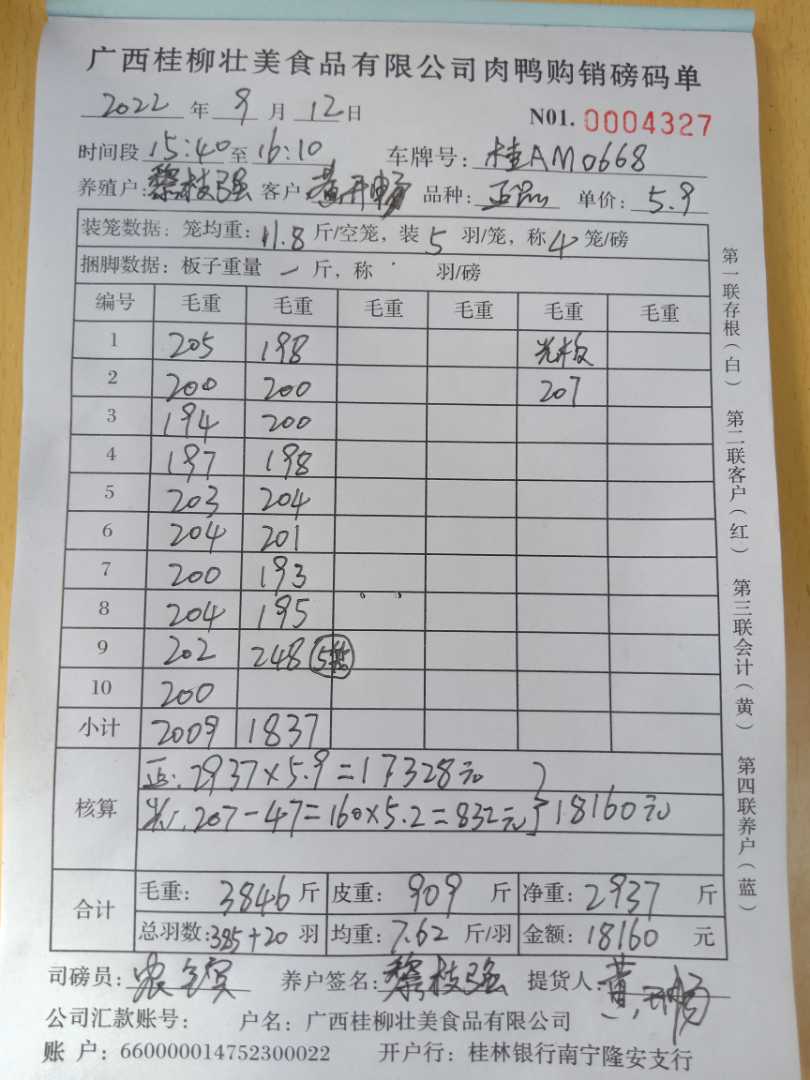 广西桂柳壮美食品有限公司肉鸭购销磅码单
2022年9月12日 N01. 0004327
时间段 15:40 至 16:10 车牌号: 桂AM0668
养殖户: 黎枝强 客户: 黄开畅 品种: 正品 单价: 5.9
装笼数据: 笼均重: 11.8 斤/空笼, 装 5 羽/笼, 称 4 笼/磅
捆脚数据: 板子重量 一 斤, 称 羽/磅
编号 毛重 毛重 毛重 毛重 毛重 毛重
1 205 198 光板
2 200 200 207
3 194 200
4 197 198
5 203 204
6 204 201
7 200 193
8 204 195
9 202 248 5笼
10 200
小计 2009 1837
核算
正: 2937×5.9=17328元
光: 207-47=160×5.2=832元 } 18160元
合计
毛重: 3846 斤 皮重: 909 斤 净重: 2937 斤
总羽数: 385+20 羽 均重: 7.62 斤/羽 金额: 18160 元
司磅员: 养户签名: 黎枝强 提货人: 黄开畅
公司汇款账号: 户名: 广西桂柳壮美食品有限公司
账 户: 660000014752300022 开户行: 桂林银行南宁隆安支行
第一联存根(白) 第二联客户(红) 第三联会计(黄) 第四联养户(蓝)